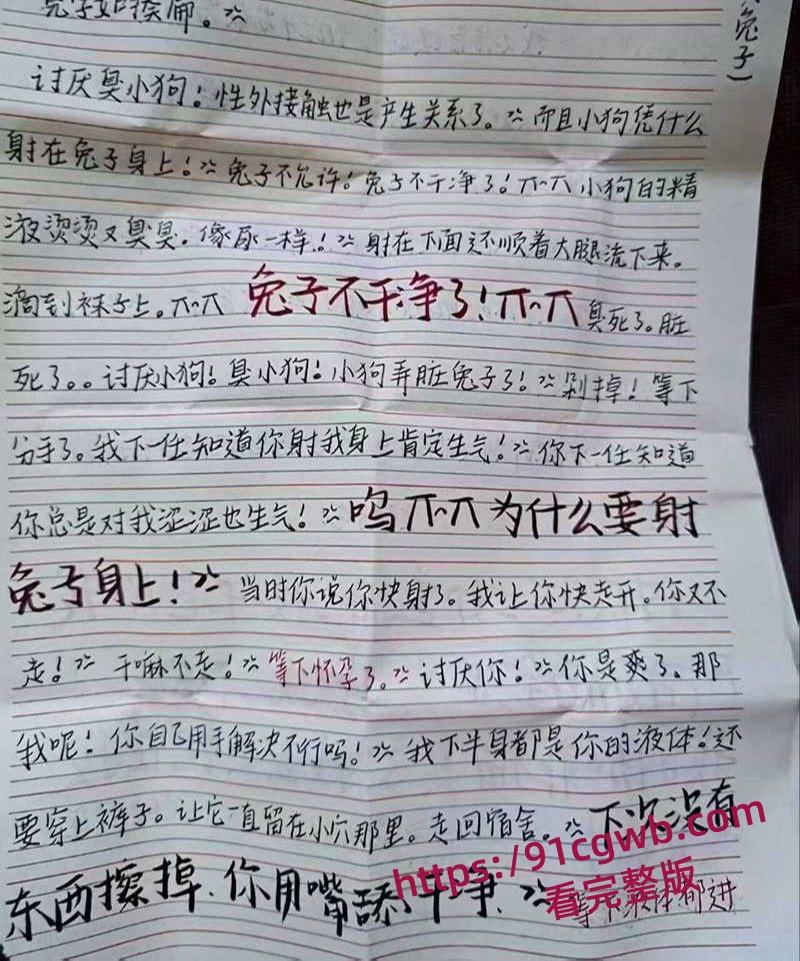 兔子)
兔子如挨痛。
讨厌臭小狗!性外接触也是产生关系了。而且小狗凭什么
射在兔子身上!兔子不允许!兔子不干净了!小狗的精
液烫烫又臭臭。像尿一样!射在下面还顺着大腿流下来。
滴到袜子上。兔子不干净了!臭死了。脏
死了。。讨厌小狗!臭小狗!小狗弄脏兔子了!剁掉!等下
分手了。我下一任知道你射我身上肯定生气!你下一任知道
你总是对我涩涩也生气!呜 为什么要射
兔子身上!当时你说你快射了。我让你快走开。你又不
走!干嘛不走!等下怀孕了。讨厌你!你是爽了。那
我呢!你自己用手解决不行吗!我下半身都是你的液体!还
要穿上裤子。让它一直留在小穴那里。走回宿舍。下次没有
东西擦掉、你用嘴舔干净、等下液体都进
https://91cgwb.com
看完整版